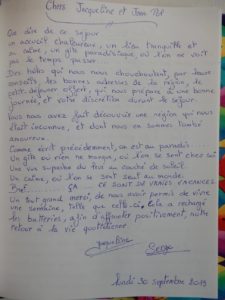 Chers Jacqueline et Jean
Que dire de ce séjour
un accueil chaleureux, un lieu tranquille et
au calme, un gîte paradisiaque où l'on ne voit
pas le temps passer.
Des hôtes qui nous nous chouchoutent, par leurs
conseils les bonnes adresses de la région, le
petit déjeuner offert, qui nous prépare à une bonne
journée, et votre discrétion durant le séjour
Vous nous avez fait découvrir une région qui nous
était inconnue, et dont nous en sommes tombé
amoureux.
Comme écrit précédemment, on est au paradis
Un gîte où rien ne manque, où l'on se sent chez soi
Une vue superbe du haut au saut de
Un calme, où l'on se sent seul au monde.
Bref ........ ÇA ... CE SONT DE VRAIES VACANCES
Un tout grand merci, de nous avoir permis de vivre
une semaine, telle que celle-ci, cela a rechargé
les batteries, afin d'affronter positivement, notre
retour à la vie quotidienne
Jacqueline Serge
lundi 30 septembre 2019